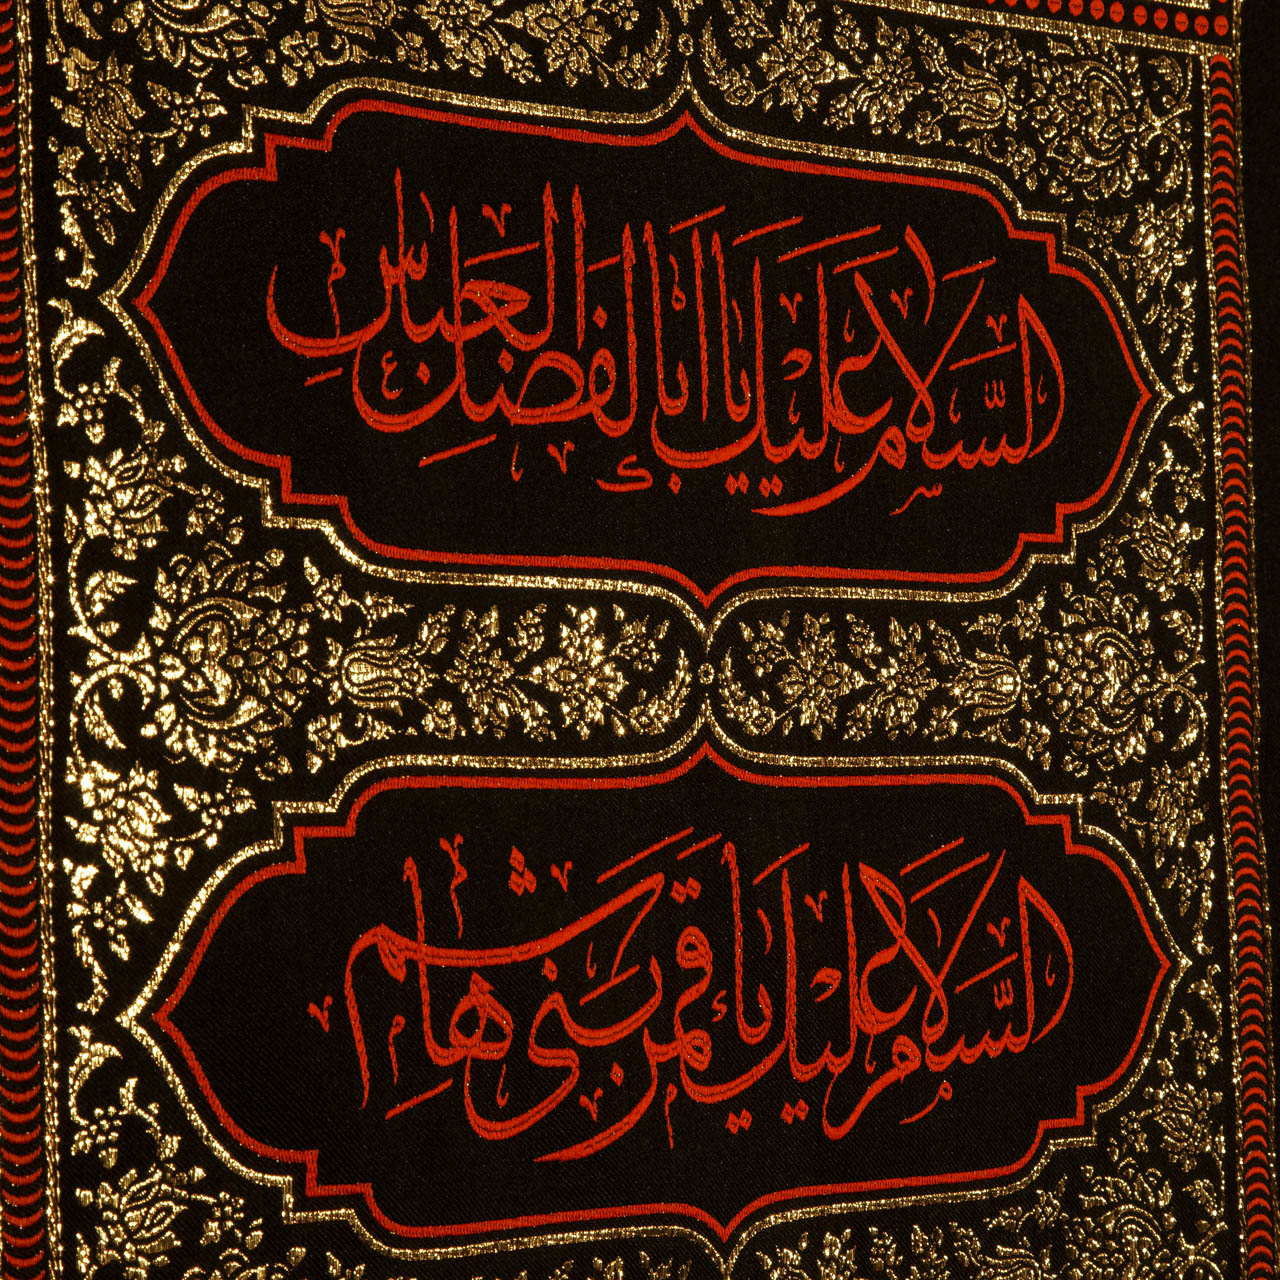 السَّلامُ عَلَيكَ يا أَبَا الفَضلِ العَبّاس
السَّلامُ عَلَيكَ يا قَمَرَ بَنی هاشِم